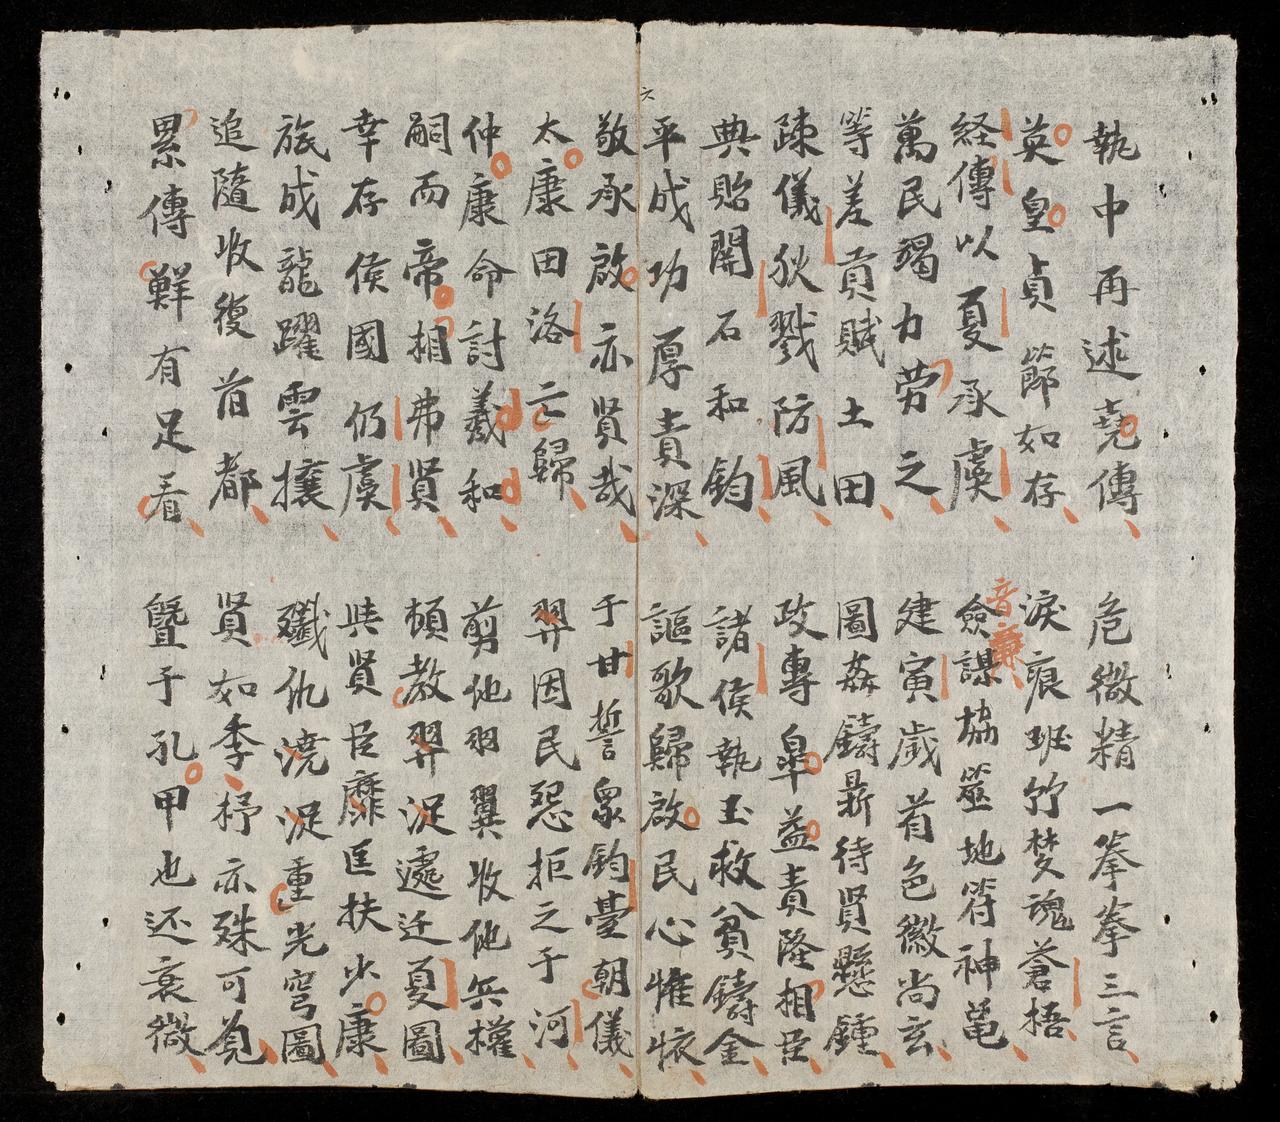 六
執中再述堯傳
危微精一拳拳三言
英皇貞節如存
淚痕班竹梦魂蒼梧
経傳以夏承虞
僉謀協筮地符神黽
音兼
萬民竭力劳之
建寅歲首色徽尚玄
等差貢賦土田
圖姦鑄鼎待賢懸鍾
疎儀狄戮防風
政專皐益責隆相臣
典貽関石和鈞
諸侯執玉救貧鑄金
平成功厚責深
謳歌歸啟民心惟依
敬承啟亦賢哉
于甘誓众鈞臺朝儀
太康田洛亡歸
羿因民怨拒之于河
仲康命討羲和
剪他羽翼收他兵權
嗣而帝相弗賢
頓教羿浞遽迁夏圖
幸存侯國仍虞
與賢臣靡匡扶少康
旅成龍躍雲攘
殱仇澆浞重光穹圖
追隨收復首都
賢如季杼亦殊可覔
累傳鮮有足看
曁于孔甲也还衰微